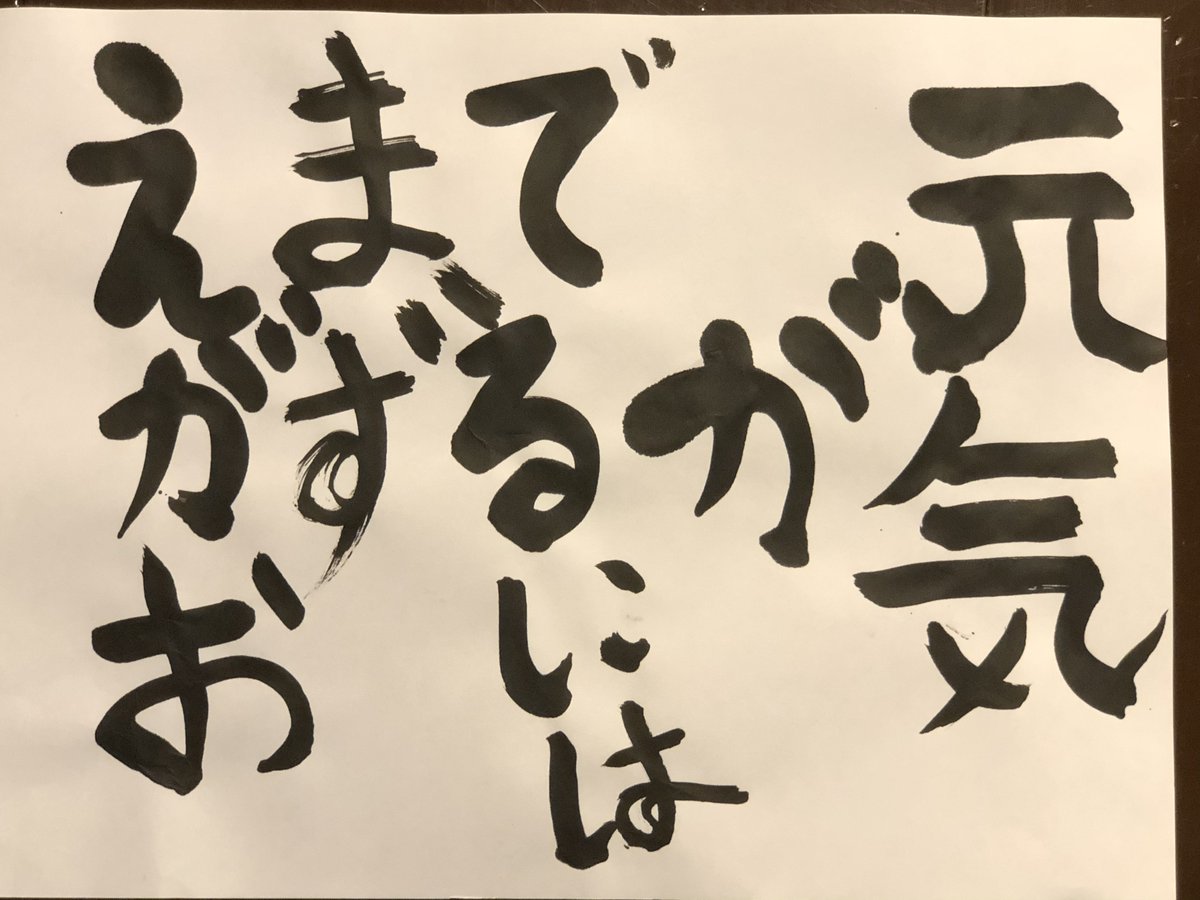 元気
が
でるには
まず
えがお